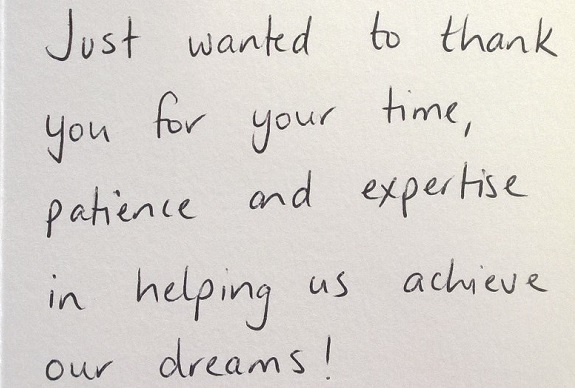 Just wanted to thank
you for your time,
patience and expertise
in helping us achieve
our dreams!